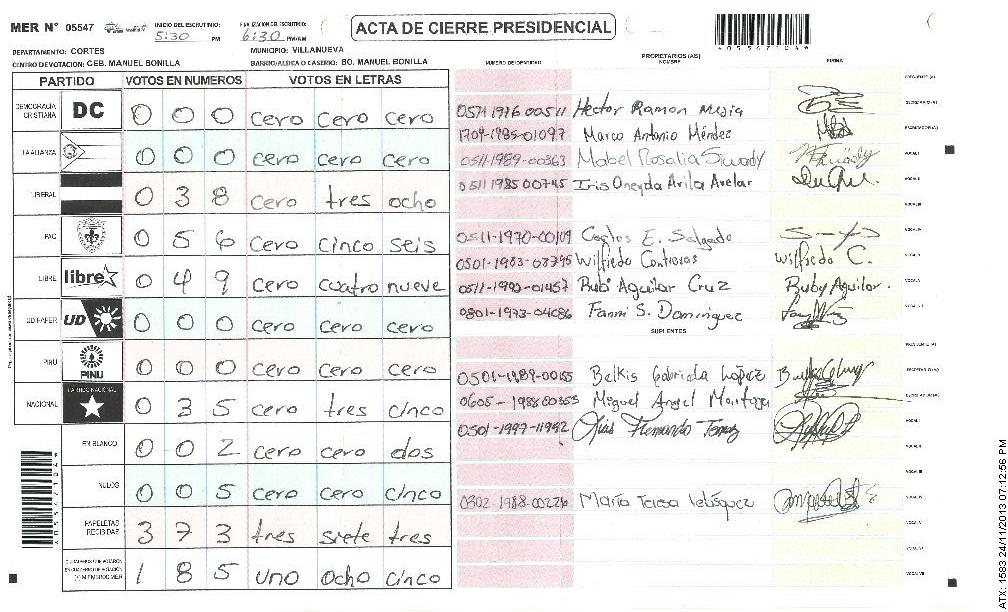 MER N° 05547 INICIO DEL ESCRUTINIO: 5:30 PM FINALIZACION DEL ESCRUTINIO: 6:30 PM/AM
ACTA DE CIERRE PRESIDENCIAL
DEPARTAMENTO: CORTES MUNICIPIO: VILLANUEVA
CENTRO DE VOTACION: CEB. MANUEL BONILLA BARRIO/ALDEA O CASERIO: BO. MANUEL BONILLA
PARTIDO VOTOS EN NUMEROS VOTOS EN LETRAS
DEMOCRACIA CRISTIANA DC 0 0 0 cero cero cero
LA ALIANZA 0 0 0 cero cero cero
LIBERAL 0 3 8 cero tres ocho
PAC 0 5 6 cero cinco seis
LIBRE libre 0 4 9 cero cuatro nueve
UD FAPER UD 0 0 0 cero cero cero
PINU PINU 0 0 0 cero cero cero
NACIONAL PARTIDO NACIONAL 0 3 5 cero tres cinco
EN BLANCO 0 0 2 cero cero dos
NULOS 0 0 5 cero cero cinco
PAPELETAS RECIBIDAS 3 7 3 tres siete tres
1 8 5 uno ocho cinco
NUMERO DE IDENTIDAD PROPIETARIOS (AS) NOMBRE FIRMA
PRESIDENTE (A)
0511 1976 00511 Hector Ramon Mejia
SECRETARIO (A)
1709-1985-01097 Marco Antonio Méndez
ESCRUTADOR (A)
0511-1989-00363 Mabel Rosalia
VOCAL I
0511 1985 00745 Iris Oneyda Avila Avelar
VOCAL II
VOCAL III
0511-1970-00109 Carlos E. Salgado
VOCAL IV
0501-1983-03795 Wilfredo Contreras Wilfredo C.
VOCAL V
0511-1992-01457 Rubi Aguilar Cruz Ruby Aguilar.
0801-1973-04086 Fanni S. Dominguez
SUPLENTES
PRESIDENTE (A)
0501-1989-00155 Belkis Gabriela López
SECRETARIO (A)
0605-1988 00355 Miguel Angel
ESCRUTADOR (A)
0501-1997-11992 Fernando
VOCAL I
VOCAL II
VOCAL III
0302-1988-00226 María Teresa Velásquez
VOCAL IV
VOCAL V
VOCAL VI
VOCAL VII
ATX: 1583 24/11/2013 07:12:56 PM